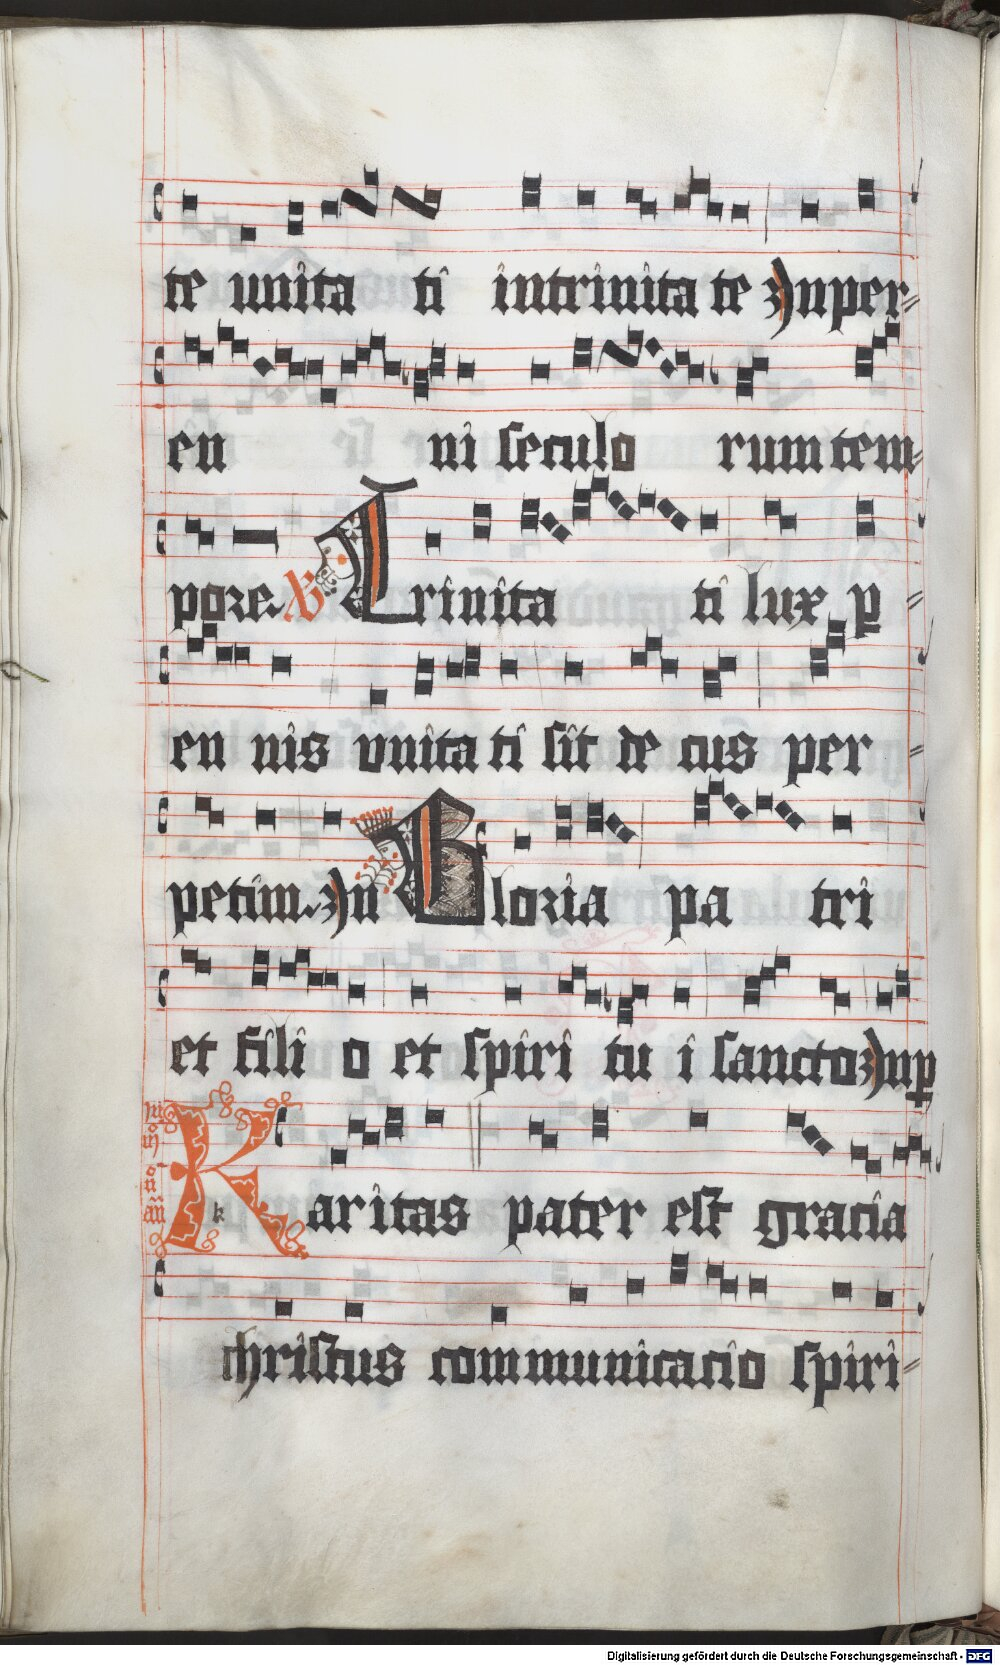 te unita ti intrinita te Inper⸗
en ni seculo rum tem⸗
pore. V Trinita ti lux ꝑ⸗
en nis vnita ti sit de cus per⸗
petim. In Gloria pa tri
et fili o et spiri tu i sancto Inꝑ
k Karitas pater est gracia
christus communicacio spiri⸗
Digitalisierung gefördert durch die Deutsche Forschungsgemeinschaft - DFG